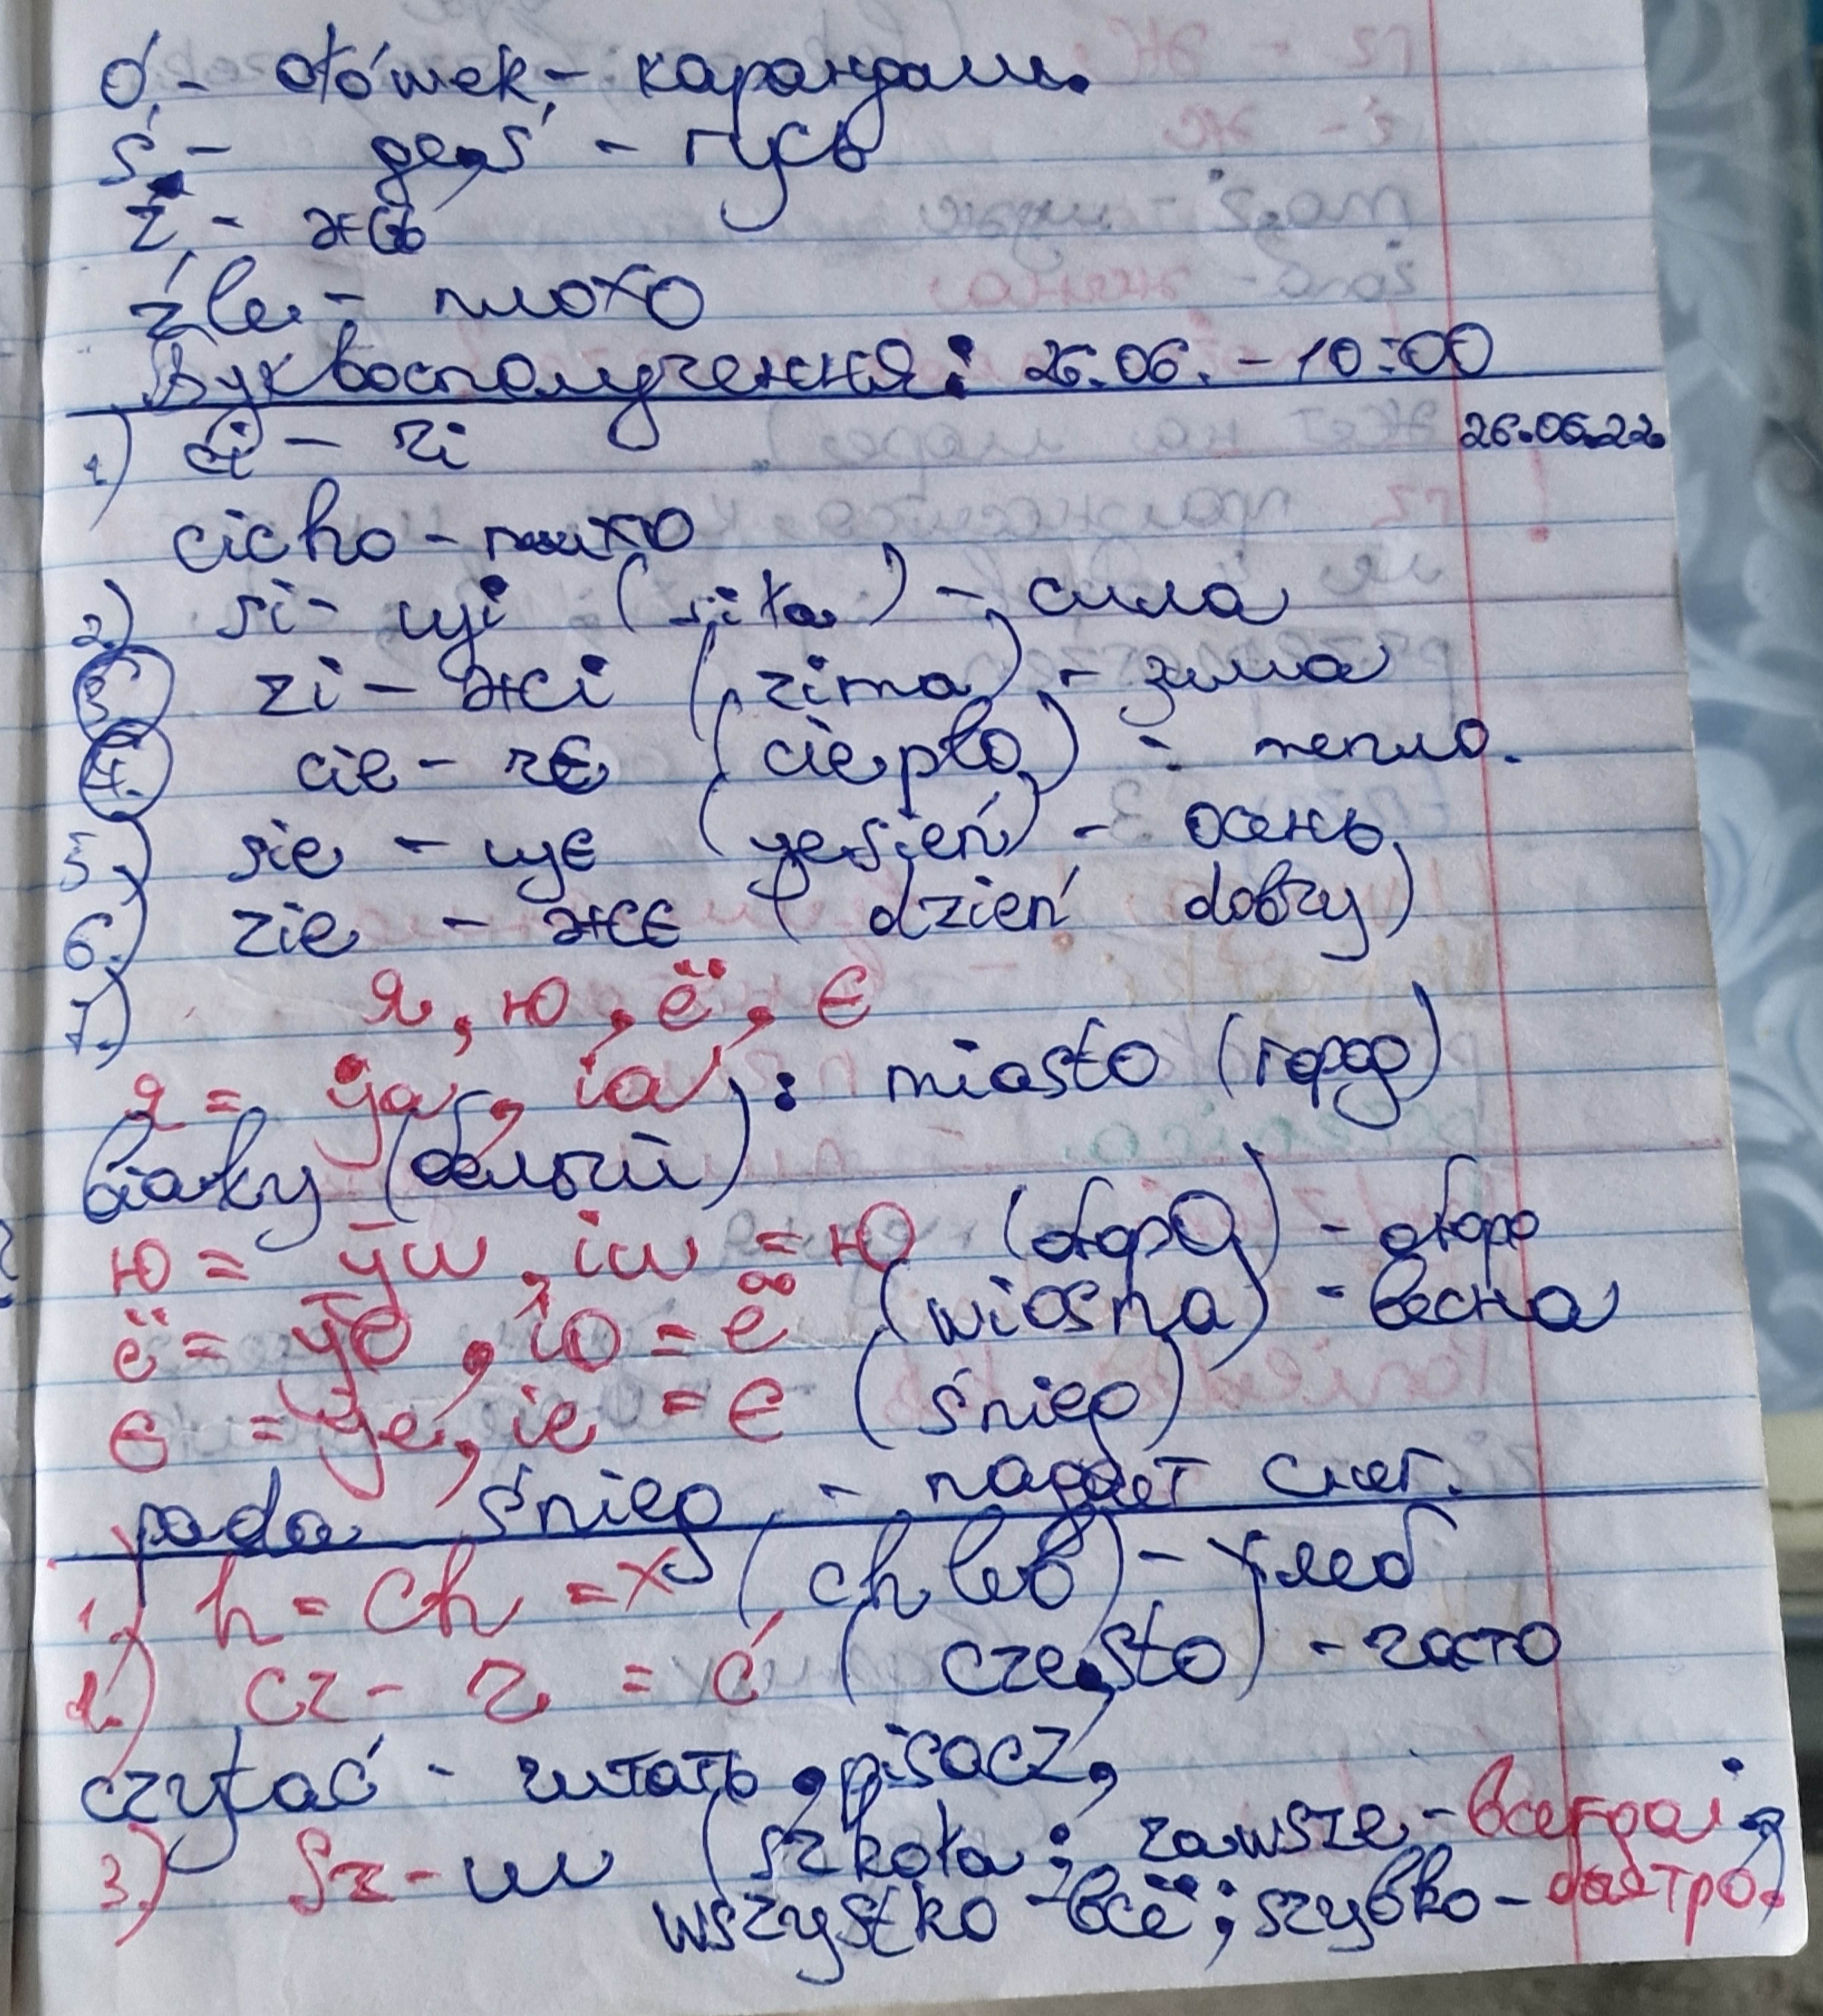 ó - ołówek - карандаш.
ś - gęś - гусь
ź - жь
źle - плохо
Буквосполучення: 26.06. - 10:00
26.06.22.
1) ci - чі
cicho - тихо
2) si - щі (siła) - сила
3) zi - жі (zima) - зима
4. cie - чє (ciepło) - тепло.
5.) sie - щє (yesień) - осень
6.) zie - жє (dzień dobry)
7.) я, ю, ё, є
я = ya, ia : miasto (город)
biały (белый)
ю = yu, iu = ю
ё = yo, io = ё (wiosna) - весна
є = ye, ie = є (śnieg)
pada śnieg - падает снег.
1.) h = ch = x (chleb) - хлеб
2.) cz - ч = ć (często) - часто
czytać - читать, pisacz,
3.) Sz - ш (szkoła; zawsze - всегда;
wszystko - всё; szybko - быстро.)